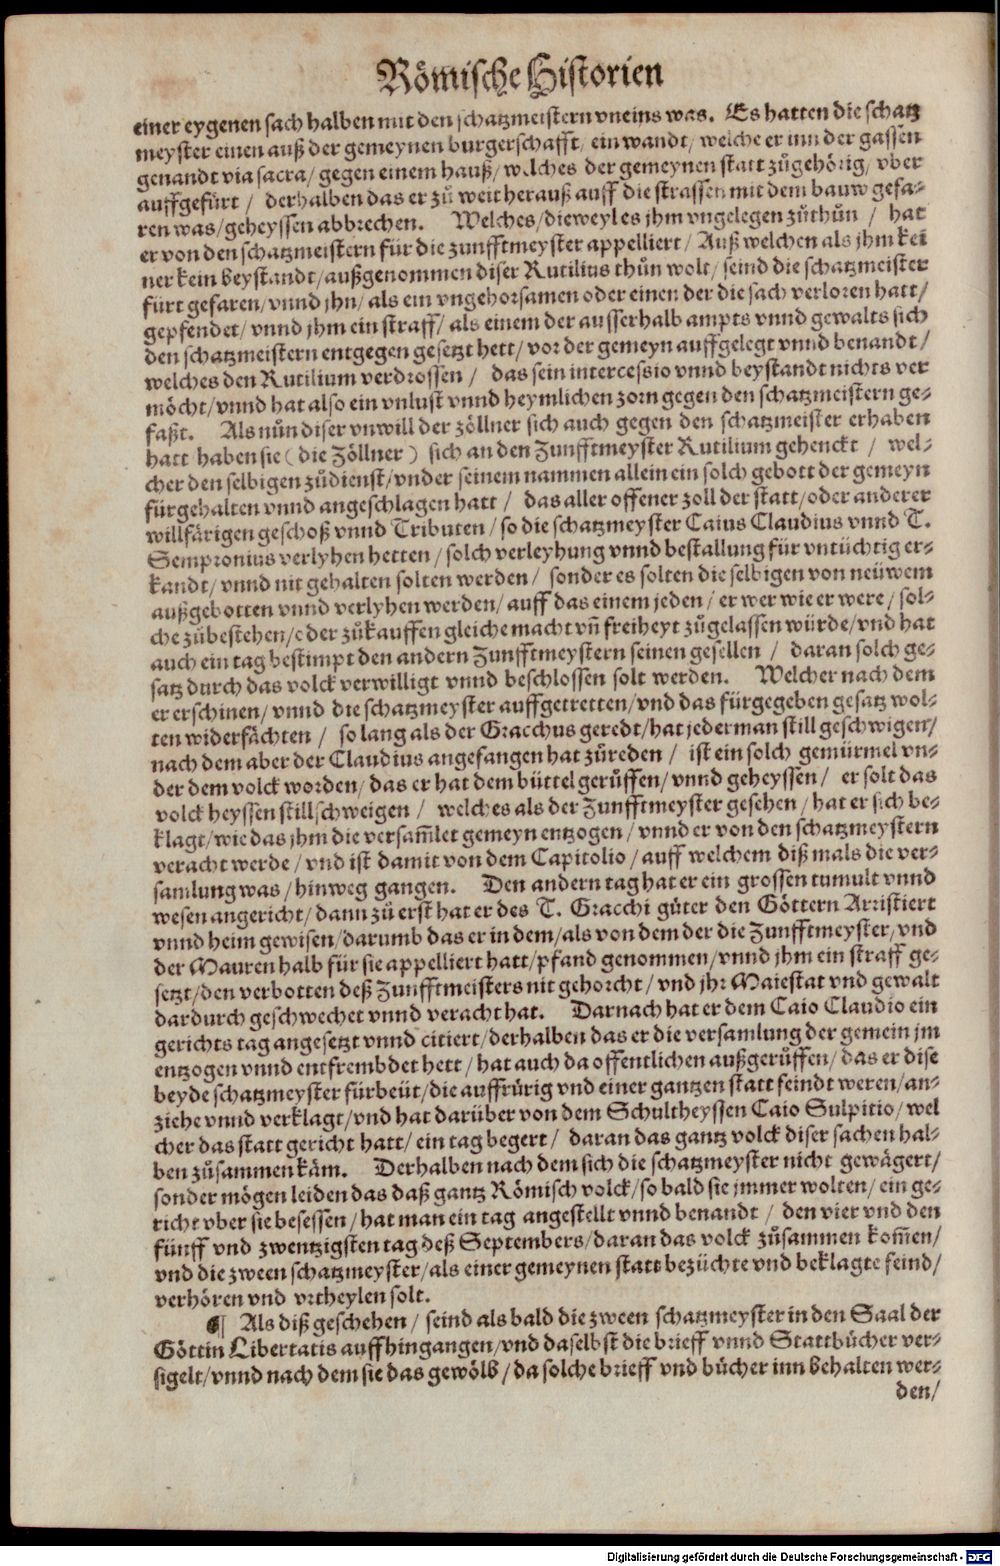 Römische Historien
einer eygenen sach halben mit den schatzmeistern vneins was. Es hatten die schatz
meyster einen auß der gemeynen burgerschafft/ ein wandt/ welche er inn der gassen
genandt via sacra/ gegen einem hauß/ welches der gemeynen statt zůgehörig/ vber
auffgefürt/ derhalben das er zů weit herauß auff die strassen mit dem bauw gefa-
ren was/ geheyssen abbrechen. Welches/ dieweyl es jhm vngelegen zůthůn/ hat
er von den schatzmeistern für die zunfftmeyster appelliert/ Auß welchen als jhm kei
ner kein beystandt/ außgenommen diser Rutilius thůn wolt/ seind die schatzmeister
fürt gefaren/ vnnd jhn/ als ein vngehorsamen oder einen der die sach verloren hatt/
gepfendet/ vnnd jhm ein straff/ als einem der ausserhalb ampts vnnd gewalts sich
den schatzmeistern entgegen gesetzt hett/ vor der gemeyn auffgelegt vnnd benandt/
welches den Rutilium verdrossen/ das sein intercessio vnnd beystandt nichts ver
möcht/ vnnd hat also ein vnlust vnnd heymlichen zorn gegen den schatzmeistern ge-
faßt. Als nůn diser vnwill der zöllner sich auch gegen den schatzmeister erhaben
hatt haben sie (die Zöllner) sich an den Zunfftmeyster Rutilium gehenckt/ wel-
cher den selbigen zůdienst/ vnder seinem nammen allein ein solch gebott der gemeyn
fürgehalten vnnd angeschlagen hatt/ das aller offener zoll der statt/ oder anderer
willfärigen geschoß vnnd Tributen/ so die schatzmeyster Caius Claudius vnnd T.
Sempronius verlyhen hetten/ solch verleyhung vnnd bestallung für vntüchtig er-
kandt/ vnnd nit gehalten solten werden/ sonder es solten die selbigen von neüwem
außgebotten vnnd verlyhen werden/ auff das einem jeden/ er wer wie er were/ sol-
che zůbestehen/ oder zůkauffen gleiche macht vñ freiheyt zůgelassen würde/ vnd hat
auch ein tag bestimpt den andern Zunfftmeystern seinen gesellen/ daran solch ge-
satz durch das volck verwilligt vnnd beschlossen solt werden. Welcher nach dem
er erschinen/ vnnd die schatzmeyster auffgetretten/ vnd das fürgegeben gesatz wol-
ten widerfächten/ so lang als der Gracchus geredt/ hat jederman still geschwigen/
nach dem aber der Claudius angefangen hat zůreden/ ist ein solch gemürmel vn-
der dem volck worden/ das er hat dem büttel gerůffen/ vnnd geheyssen/ er solt das
volck heyssen stillschweigen/ welches als der Zunfftmeyster gesehen/ hat er sich be-
klagt/ wie das jhm die versam̃let gemeyn entzogen/ vnnd er von den schatzmeystern
veracht werde/ vnd ist damit von dem Capitolio/ auff welchem diß mals die ver-
samlung was/ hinweg gangen. Den andern tag hat er ein grossen tumult vnnd
wesen angericht/ dann zů erst hat er des T. Gracchi gůter den Göttern Arristiert
vnnd heim gewisen/ darumb das er in dem/ als von dem der die Zunfftmeyster/ vnd
der Mauren halb für sie appelliert hatt/ pfand genommen/ vnnd jhm ein straff ge-
setzt/ den verbotten deß Zunfftmeisters nit gehorcht/ vnd jhr Maiestat vnd gewalt
dardurch geschwechet vnnd veracht hat. Darnach hat er dem Caio Claudio ein
gerichts tag angesetzt vnnd citiert/ derhalben das er die versamlung der gemein jm
entzogen vnnd entfrembdet hett/ hat auch da offentlichen außgerůffen/ das er dise
beyde schatzmeyster fürbeüt/ die auffrůrig vnd einer gantzen statt feindt weren/ an-
ziehe vnnd verklagt/ vnd hat darüber von dem Schultheyssen Caio Sulpitio/ wel
cher das statt gericht hatt/ ein tag begert/ daran das gantz volck diser sachen hal-
ben zůsammen käm. Derhalben nach dem sich die schatzmeyster nicht gewägert/
sonder mögen leiden das daß gantz Römisch volck/ so bald sie jmmer wolten/ ein ge-
richt vber sie besessen/ hat man ein tag angestellt vnnd benandt/ den vier vnd den
fünff vnd zwentzigsten tag deß Septembers/ daran das volck zůsammen kom̃en/
vnd die zween schatzmeyster/ als einer gemeynen statt bezüchte vnd beklagte feind/
verhören vnd vrtheylen solt.
¶ Als diß geschehen/ seind als bald die zween schatzmeyster in den Saal der
Göttin Libertatis auffhingangen/ vnd daselbst die brieff vnnd Stattbůcher ver-
sigelt/ vnnd nach dem sie das gewölb/ da solche brieff vnd bůcher inn behalten wer-
den/
Digitalisierung gefördert durch die Deutsche Forschungsgemeinschaft - DFG